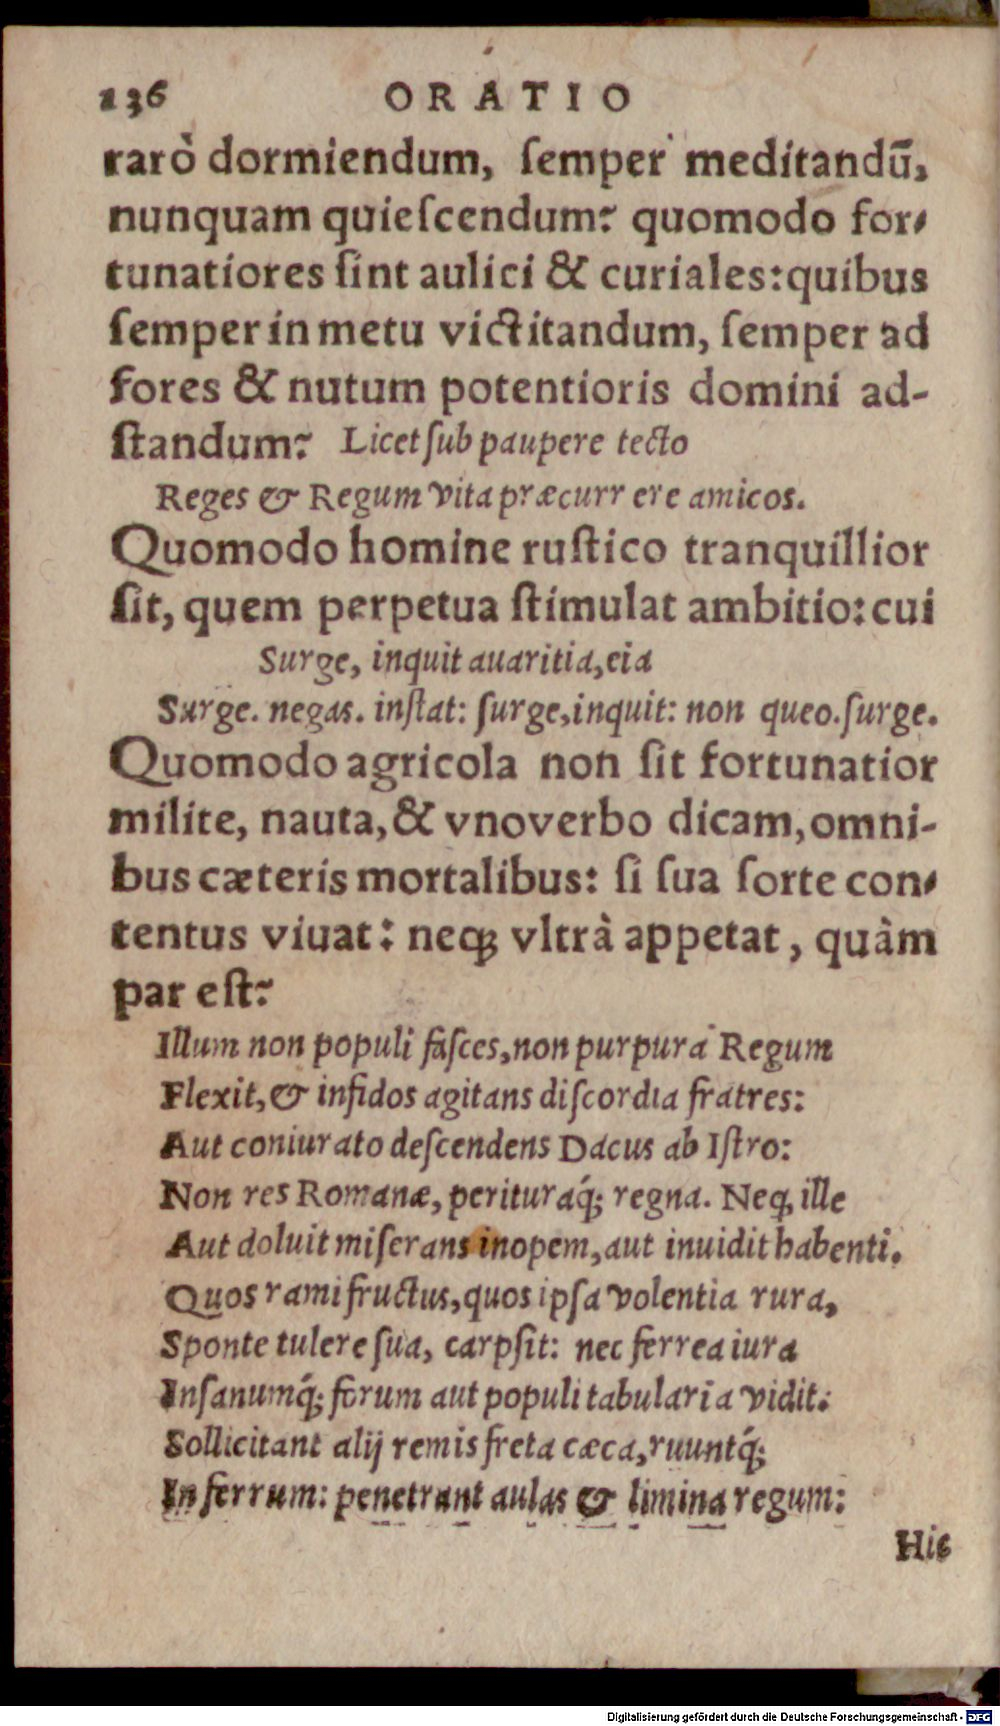 136 ORATIO
rarò dormiendum, ſemper meditandū,
nunquam quieſcendum? quomodo for-
tunatiores ſint aulici & curiales: quibus
ſemper in metu victitandum, ſemper ad
fores & nutum potentioris domini ad-
ſtandum? Licet ſub paupere tecto
Reges & Regum vita præcurrere amicos.
Quomodo homine ruſtico tranquillior
ſit, quem perpetua ſtimulat ambitio: cui
Surge, inquit auaritia, eia
Surge. negas. inſtat: ſurge, inquit: non queo. ſurge.
Quomodo agricola non ſit fortunatior
milite, nauta, & vnoverbo dicam, omni-
bus cæteris mortalibus: ſi ſua ſorte con-
tentus viuat: neqꝫ vltrà appetat, quàm
par eſt?
Illum non populi faſces, non purpura Regum
Flexit, & infidos agitans diſcordia fratres:
Aut coniurato deſcendens Dacus ab Iſtro:
Non res Romanæ, perituraq́ꝫ regna. Neqꝫ ille
Aut doluit miſerans inopem, aut inuidit habenti.
Quos rami fructus, quos ipſa volentia rura,
Sponte tulere ſua, carpſit: nec ferrea iura
Inſanumq́ꝫ forum aut populi tabularia vidit:
Sollicitant alij remis freta cæca, ruuntq́ꝫ
In ferrum: penetrant aulas & limina regum:
Hic
Digitalisierung gefördert durch die Deutsche Forschungsgemeinschaft - DFG